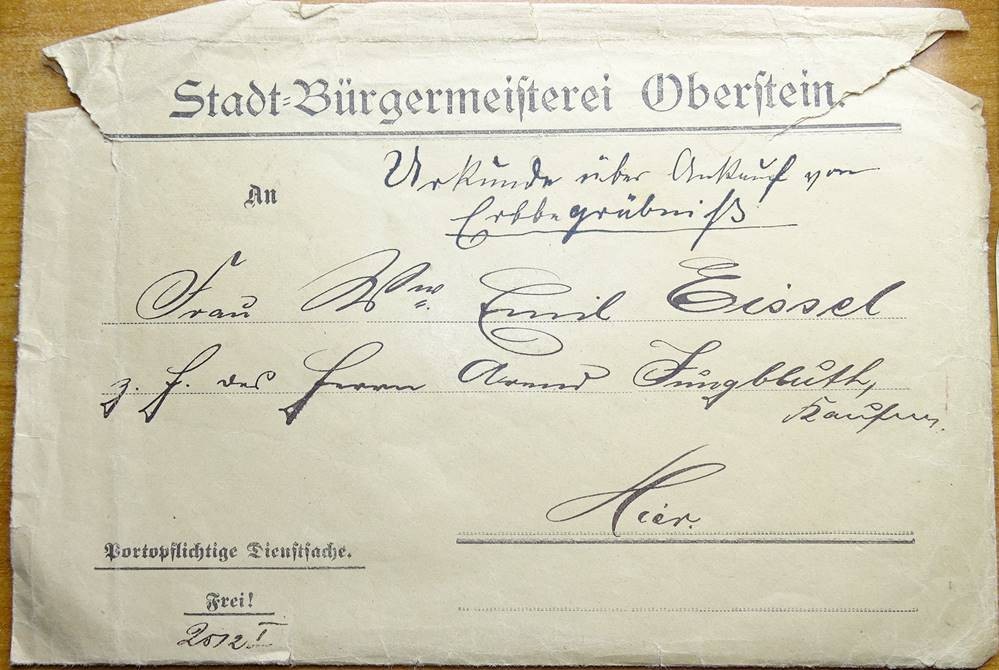 Stadt-Bürgermeisterei Oberstein.
Urkunde über Ankauf von
An
Erbbegräbniß
Frau Ww. Emil Eissel
z. H. des Herrn Arend Jungbluth,
Kaufm.
Hier.
Portopflichtige Dienstsache.
Frei!
2012 I